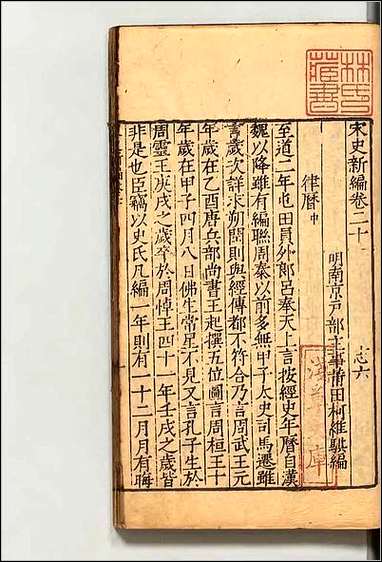 林氏
藏書
宋史新編卷二十
志六
明南京戶部主事莆田柯維騏編
律曆中
至道二年屯田員外郎呂奉天上言按經史年曆自漢
魏以降雖有編聯周秦以前多無甲子太史司馬遷雖
言歲次詳求朔閏則與經傳都不符合乃言周武王元
年歲在乙酉唐兵部尚書王起撰五位圖言周桓王十
年歲在甲子四月八日佛生常星不見又言孔子生於
周靈王庚戌之歲卒於周悼王四十一年壬戌之歲皆
非是也臣竊以史氏凡編一年則有一十二月月有晦